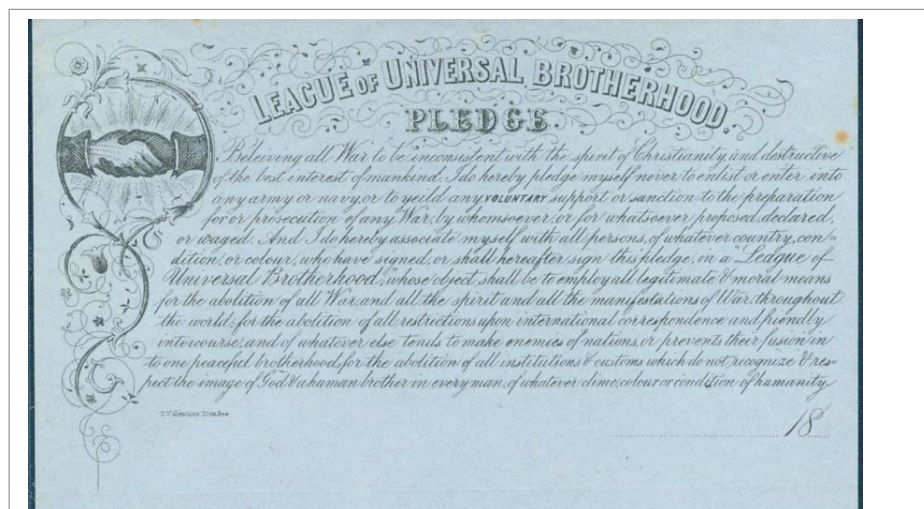 LEAGUE OF UNIVERSAL BROTHERHOOD.
PLEDGE.
Beleiving all War to be inconsistent with the spirit of Christianity, and destructive
of the best interest of mankind, I do hereby pledge myself never to enlist or enter into
any army or navy, or to yeild any VOLUNTARY support or sanction to the preparation
for or prosecution of any War, by whomsoever, or for whatsoever proposed, declared,
or waged. And I do hereby associate myself with all persons, of whatever country, con=
dition, or colour, who have signed, or shall hereafter sign this pledge, in a "League of
Universal Brotherhood," whose object shall be to employ all legitimate & moral means
for the abolition of all War, and all the spirit and all the manifestations of War, throughout
the world; for the abolition of all restrictions upon international correspondence and friendly
intercourse, and of whatever else tends to make enemies of nations, or prevents their fusion in
to one peaceful brotherhood, for the abolition of all institutions & customs which do not recognize & res-
pect the image of God & a human brother in every man, of whatever clime, colour or condition of humanity.
Valentine Dundee
18